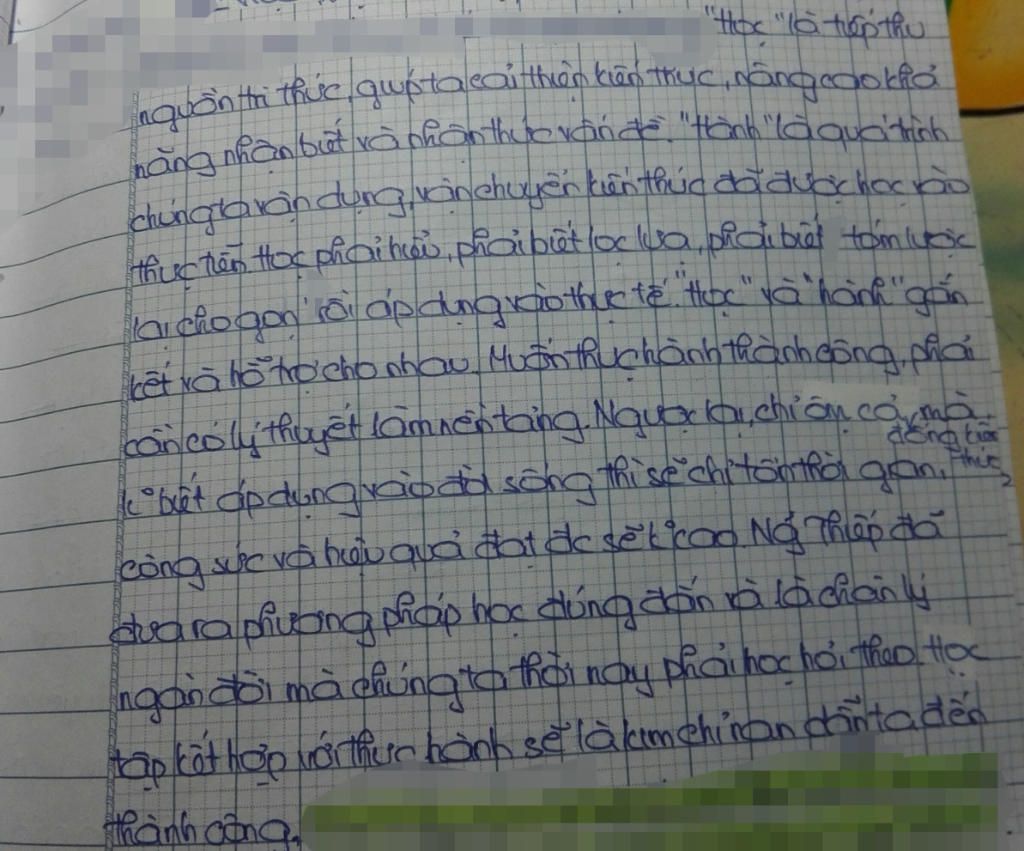 "Học" là tiếp thu
nguồn tri thức, giúp ta cải thiện kiến thức, nâng cao khả
năng nhận biết và nhận thức vấn đề. "Hành" là quá trình
chúng ta vận dụng, vận chuyển kiến thức đã được học vào
thực tiễn. Học phải hiểu, phải biết lọc lựa, phải biết tóm lược
lại cho gọn rồi áp dụng vào thực tế. "Học" và "hành" gắn
kết và hỗ trợ cho nhau. Muốn thực hành thành công, phải
cần có lý thuyết làm nền tảng. Ngược lại, chỉ ôm cả mà
đống kiến thức
k° biết áp dụng vào đời sống thì sẽ chỉ tốn thời gian,
công sức và hiệu quả đạt đc sẽ k° cao. Ng~ Thiếp đã
đưa ra phương pháp học đúng đắn và là chân lý
ngàn đời mà chúng ta thời nay phải học hỏi theo. Học
tập kết hợp với thực hành sẽ là kim chỉ nan dẫn ta đến
thành công.